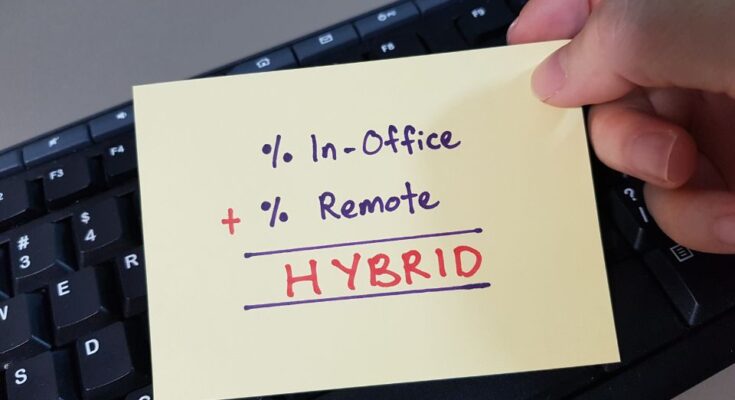 F9
F8
% In-Office
+ % Remote
HYBRID
F4
F3
$
4
#
3
R
E
W
D
S
?
/